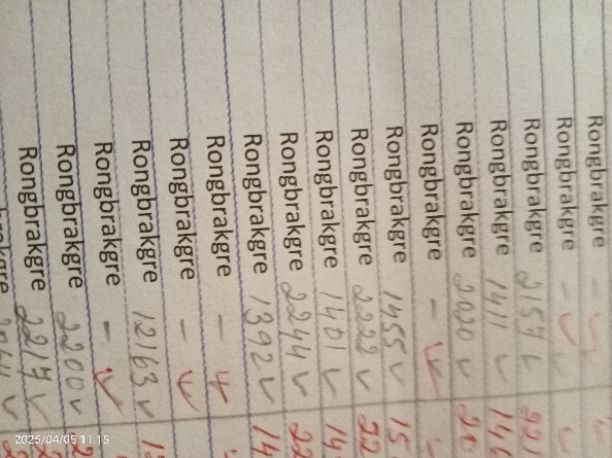 Rongbrakgre -
Rongbrakgre - ✓
Rongbrakgre 2157 ✓ 221
Rongbrakgre 1411 ✓ 146
Rongbrakgre 2020 ✓ 20
Rongbrakgre -
Rongbrakgre 1455 ✓ 15
Rongbrakgre 2222 ✓ 22
Rongbrakgre 1401 ✓ 14
Rongbrakgre 2244 ✓ 22
Rongbrakgre 1392 ✓ 14
Rongbrakgre -
Rongbrakgre -
Rongbrakgre 12163 ✓ 1
Rongbrakgre -
Rongbrakgre 2200 ✓ 2
Rongbrakgre 2217 ✓ 2
2025/04/05 11:15